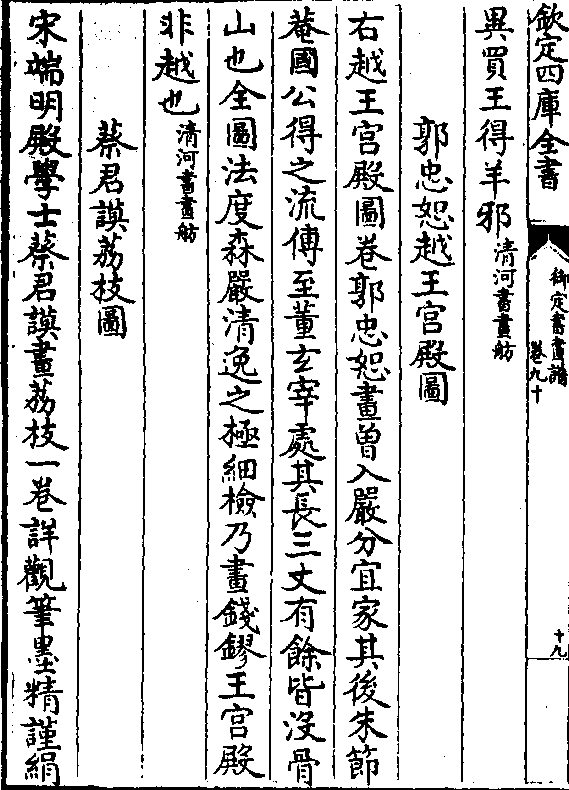 欽定四庫全書
御定書畫譜
卷九十
十九
異買王得羊邪清河書畫舫
郭忠恕越王宫殿圖
右越王宫殿圖卷郭忠恕畫曽入嚴分宜家其後朱節
菴國公得之流傳至董玄宰處其長三丈有餘皆没骨
山也全圖法度森嚴清逸之極細檢乃畫錢鏐王宫殿
非越也清河書畫舫
蔡君謨荔枝圖
宋端明殿學士蔡君謨畫荔枝一卷詳觀筆墨精謹絹